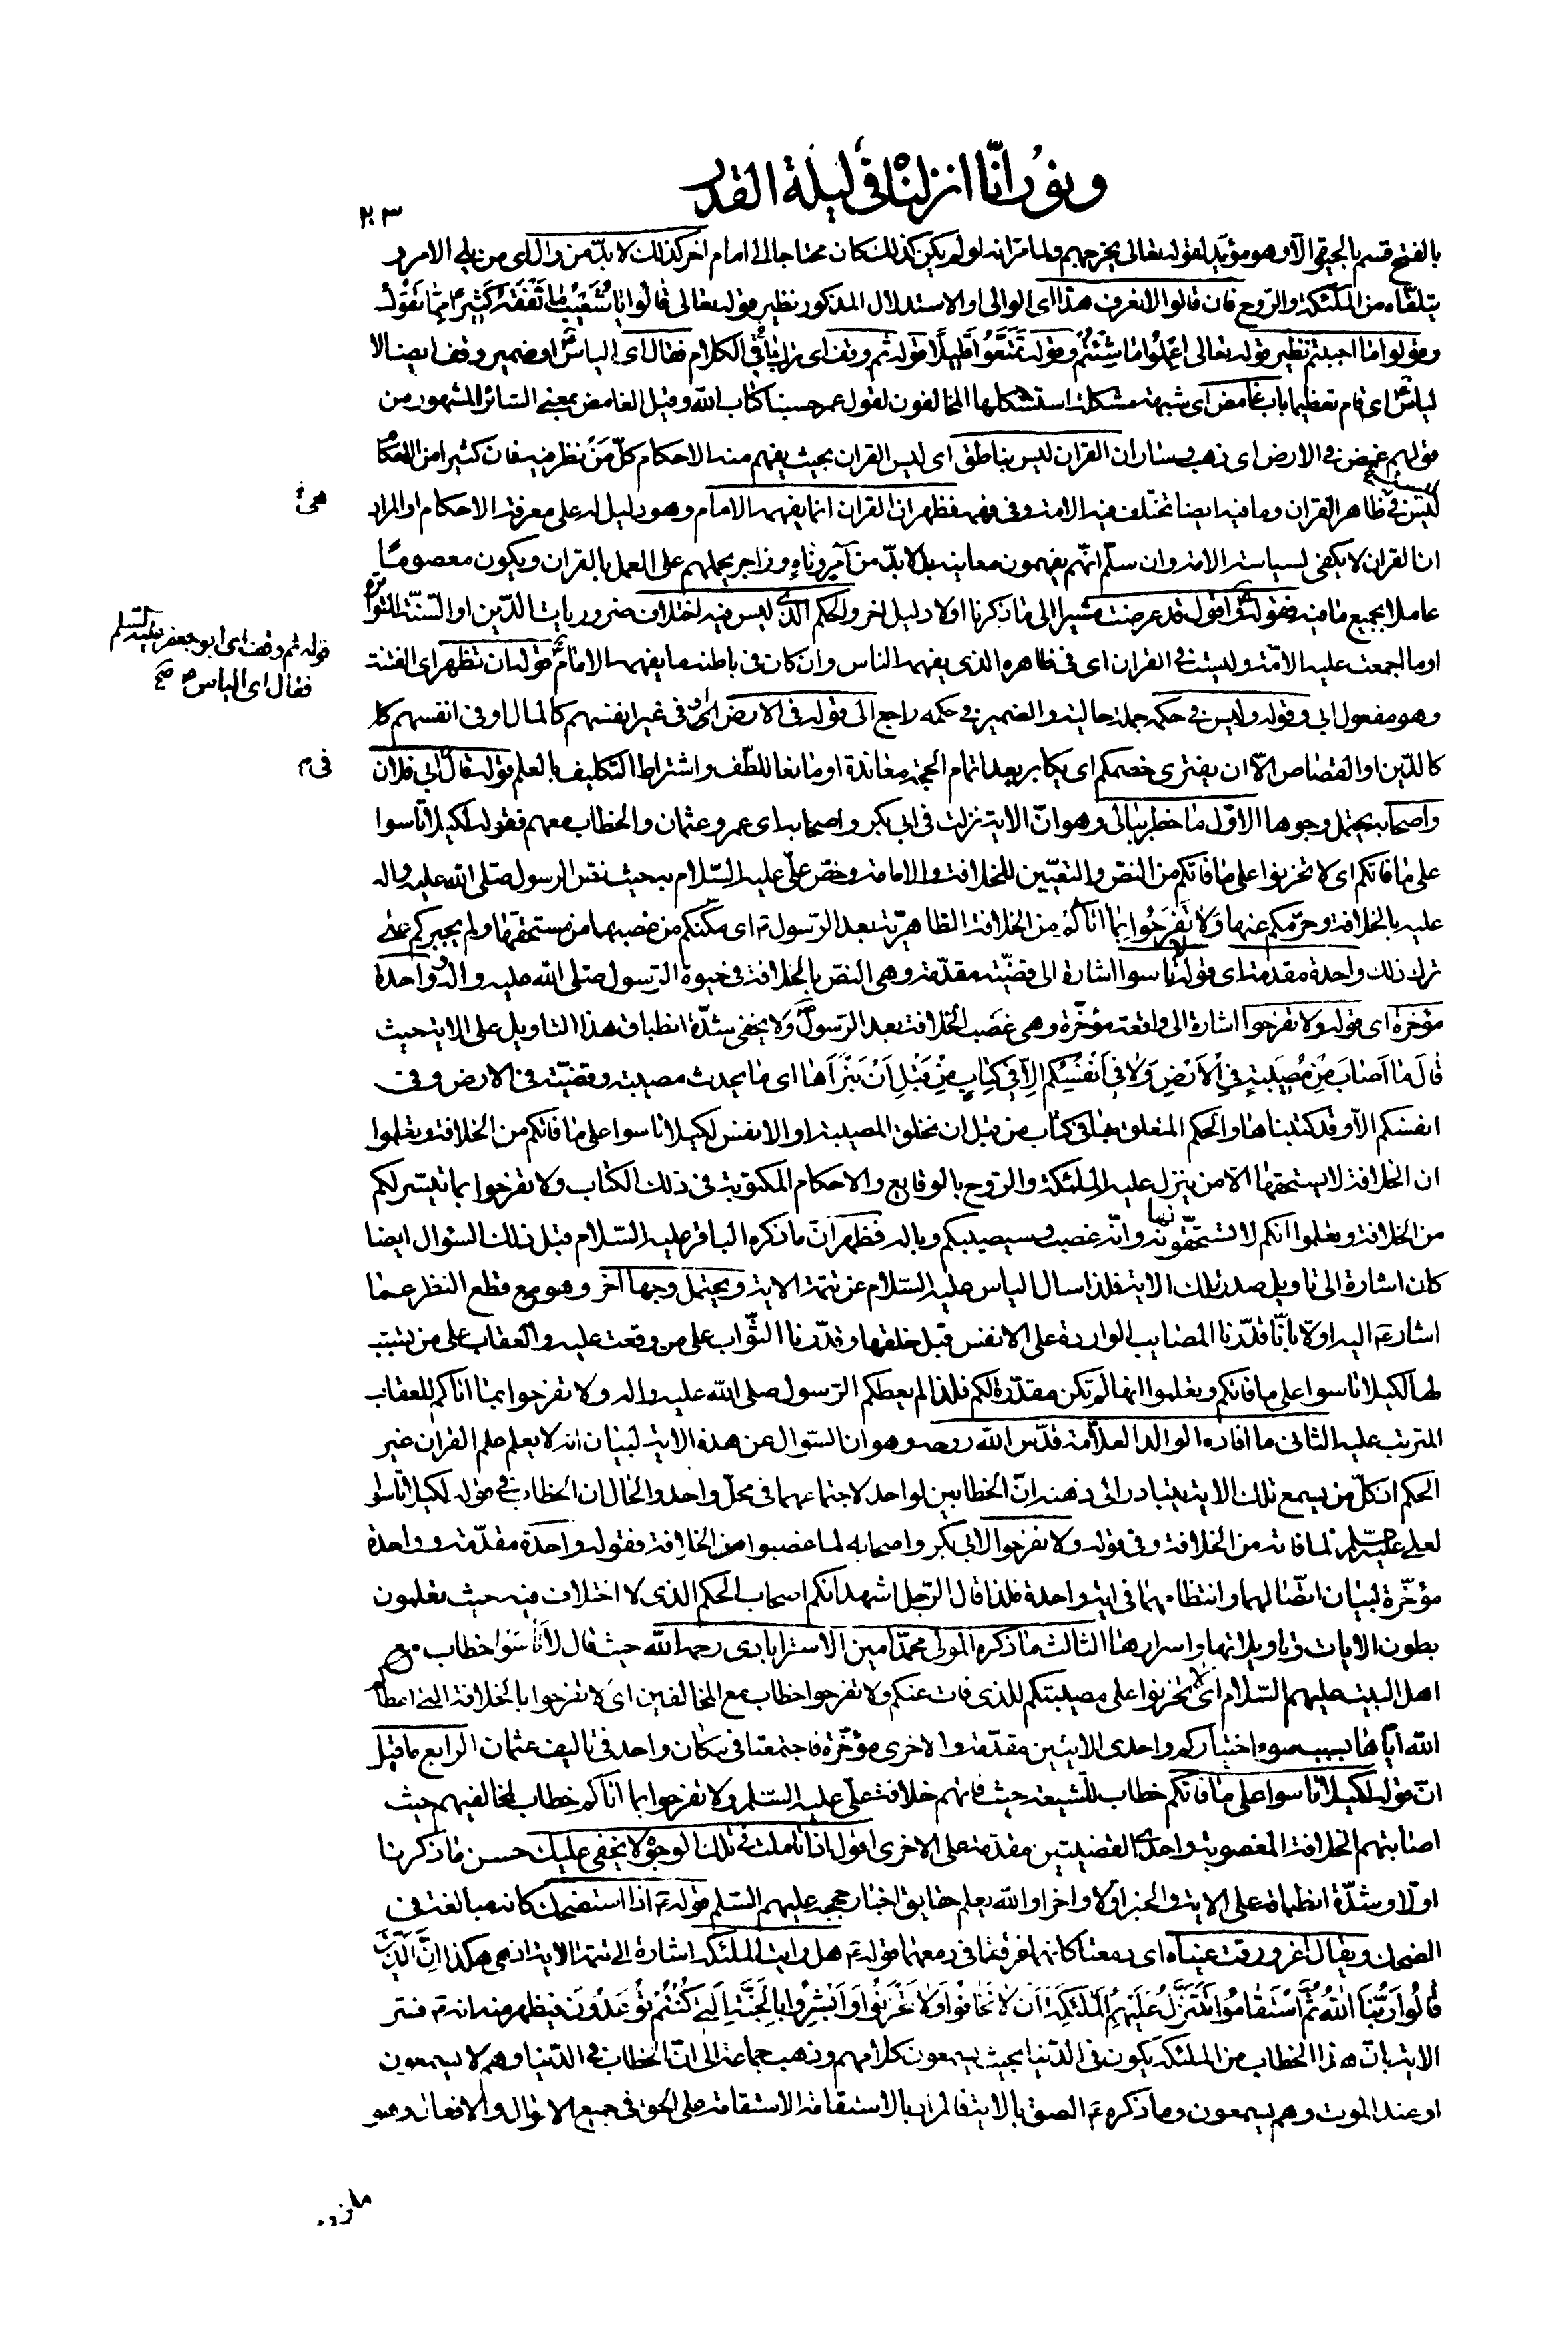 ونور انّا انزلناه فی لیلة القدر
٢٠٣
بالفتح قسم بالجيقو الّا وهو مؤيّد لقوله تعالى يخرجهم ولما مرّ انه لو لم يكن كذلك كان محتاجا الى امام اخر كذلك لا بدّ من وال اى من يلى الامر و
يتلقاه من الملئكة والرّوح فان قالوا لا نعرف هذا اى الوالى او الاستدلال المذكور نظير قوله تعالى قالُوا يا شُعَيْبُ ما نَفْقَهُ كَثِيراً مِمّا تَقُولُ
وقولوا ما احببتم نظير قوله تعالى اعْمَلُوا ما شِئْتُمْ وقوله تَمَتَّعُوا قَلِيلًا قوله ثم وقف اى فى الكلام فقال اى الياسؑ او ضمير وقف ايضا لا
لياسؑ اى قام تعظيما باب غامض اى شبهة مشكلة استشكلها المخالفون لقول عمر حسبنا كتاب الله وقيل الغامض بمعنى السائر المشهور من
قولهم غمض فى الارض اى ذهب وسار ان القران ليس بناطق اى ليس القران بحيث يفهم منه الاحكام كلّ من نظر فيه فان كثيرا من الاحكام
ليس فى ظاهر القران وما فيه ايضا تختلف فيه الامة وفى فهمه فظهر ان القران انما يفهمه الامام وهو دليل له على معرفة الاحكام او المراد
ان القران لا يكفى لسياسة الامة وان سلّم انّهم يفهمون معانيه بل لا بدّ من آمر وناهٍ وزاجر يحملهم على العمل بالقران ويكون معصومًا
عاملا بجميع ما فيه فقوله واقول قد عرضت مشيرا الى ما ذكرنا اولا دليل اخر والحكم الّذى ليس فيه اختلاف ضروريات الدّين او السّنّة المتواترة
او ما اجمعت عليه الامّة وليست فى القران اى فى ظاهره الذى يفهمه الناس وان كان فى باطنه ما يفهمه الامامؑ قوله ان تظهر اى الفتنة
وهو مفعول ابى وقوله وليس فى حكمه جملة حالية والضمير فى حكمه راجع الى قوله فى الارض اى فى غير انفسهم كالمال او فى انفسهم كا
كالدّين او القصاص الّا ان يفترى خصمكم اى يكابر بعد اتمام الحجّة معاندة او مانعا للطّف واشتراط التكليف بالعلم قوله قال فى ابى فلان
واصحابه يحتمل وجوها الاوّل ما خطر ببالى وهو انّ الاية نزلت فى ابى بكر واصحابه اى عمر وعثمان والخطاب معهم فقوله لكيلا تأسوا
على ما فاتكم اى لا تحزنوا على ما فاتكم من النصّ والتعيّين للخلافة والامامة وخصّ علىّ عليه السّلام به حيث نصّ الرسول صلّى الله عليه واله
عليه بالخلافة وحرّمكم عنها وَلا تَفْرَحُوا بِما اتاكُمْ من الخلافة الظاهريّة بعد الرّسول ص اى مكّنكم من غصبها من مستحقّها ولم يجبركم على
ترك ذلك واحدة مقدمة اى قوله لا تأسوا اشارة الى قضيّة مقدّمة وهى النصّ بالخلافة فى حيوة الرّسول صلى الله عليه واله وواحدة
مؤخرة اى قوله ولا تفرحوا اشارة الى واقعة مؤخّرة وهى غصب الخلافة بعد الرّسولؐ ولا يخفى شدّة انطباق هذا التاويل على الاية حيث
قالَ ما اَصابَ مِنْ مُصِيبَةٍ فِي الْاَرْضِ وَلا فِي اَنْفُسِكُمْ اِلّا فِي كِتابٍ مِنْ قَبْلِ اَنْ نَبْرَاَها اى ما يحدث مصيبة وقضيّة فى الارض وفى
انفسكم الّا وقد كتبناها والحكم المتعلق بها فى كتاب من قبل ان نخلق المصيبة او الانفس لكيلا تأسوا على ما فاتكم من الخلافة وتعلموا
ان الخلافة لا يستحقها الّا من ينزل عليه الملئكة والرّوح بالوقايع والاحكام المكتوبة فى ذلك الكتاب ولا تفرحوا بما تيسّر لكم
من الخلافة وتعلموا انكم لا تستحقّونه وانّه غصب وسيصيبكم وباله فظهر انّ ما ذكره الباقر عليه السّلام قبل ذلك السّئوال ايضا
كان اشارة الى تاويل صدر تلك الاية فلذا سال الياس عليه السّلام عن تتمّة الاية ويحتمل وجها اخر وهو مع قطع النظر عمّا
اشارؑ اليه اولا بانّا قدّرنا المصايب الواردة على الانفس قبل خلقها وقدّرنا الثّواب على من وقعت عليه والعقاب على من تسبّب
لها لكيلا تأسوا على ما فاتكم وتعلموا انها لم تكن مقدّرة لكم فلذا لم يعطكم الرّسول صلى الله عليه واله ولا تفرحوا بما اتاكم للعقاب
المترتب عليه الثانى ما افاده الوالد العلّامة قدّس الله روحه وهو ان السّؤال عن هذه الاية لبيان انه لا يعلم علم القران غير
الحكم اذ كلّ من يسمع تلك الاية يتبادر الى ذهنه انّ الخطابين لواحد لاجتماعهما فى محلّ واحد والحال ان الخطاب فى قوله لكيلا تأسوا
لعلى عليه السّلم لما فاته من الخلافة وفى قوله ولا تفرحوا لابى بكر واصحابه لما غصبوا من الخلافة فقوله واحدة مقدّمة وواحدة
مؤخّرة لبيان اتّصالهما وانتظامهما فى اية واحدة فلذا قال الرّجل اشهد انكم اصحاب الحكم الذى لا اختلاف فيه حيث تعلمون
بطون الايات وتاويلاتها واسرارها الثالث ما ذكره المولى محمّد امين الاسترابادى رحمه الله حيث قال لا تَأْسَوْا خطاب مع
اهل البيت عليهم السّلام اى لا تحزنوا على مصيبتكم للذى فات عنكم ولا تفرحوا خطاب مع المخالفين اى لا تفرحوا بالخلافة التى اعطاكم
الله ايّاها بسبب سوء اختياركم واحدى الايتين مقدّمة والاخرى مؤخّرة فاجتمعتا فى مكان واحد فى تاليف عثمان الرابع ما قيل
انّ قوله لكيلا تأسوا على ما فاتكم خطاب للشيعة حيث فاتهم خلافة علىّ عليه السّلم ولا تفرحوا بما اتاكم خطاب لمخالفيهم حيث
اصابتهم الخلافة المغصوبة واحدى القضيتين مقدّمة على الاخرى اقول اذا تاملت فى تلك الوجوه لا يخفى عليك حسن ما ذكرنا
اوّلا وشدّة انطباقه على الاية والخبر اوّلا واخرا والله يعلم حقايق اخبار حججه عليهم السّلم قوله ؑ اذا استضحك كانه مبالغة فى
الضحك ويقال اغرورقت عيناه اى دمعتا كانهما غرقتا فى دمعهما قوله ؑ هل رايت الملئكة اشارة الى تتمّة الاية اذ هى هكذا اِنَّ الَّذِينَ
قالُوا رَبُّنَا اللهُ ثُمَّ اسْتَقامُوا تَتَنَزَّلُ عَلَيْهِمُ الْمَلئِكَةُ اَنْ لا تَخافُوا وَلا تَحْزَنُوا وَ اَبْشِرُوا بِالْجَنَّةِ الَّتِي كُنْتُمْ تُوعَدُونَ فيظهر منه انه ؑ فسّر
الاية بانّ هذا الخطاب من الملئكة يكون فى الدّنيا بحيث يسمعون كلامهم وذهب جماعة الى انّ الخطاب فى الدّنيا وهم لا يسمعون
او عند الموت وهم يسمعون وما ذكره ؑ الصق بالاية فالمراد بالاستقامة الاستقامة على الحق فى جميع الاقوال والافعال وهو
قوله ثم وقف اى ابو جعفر عليه السّلم
فقال اى الياسؑ صح
فى م